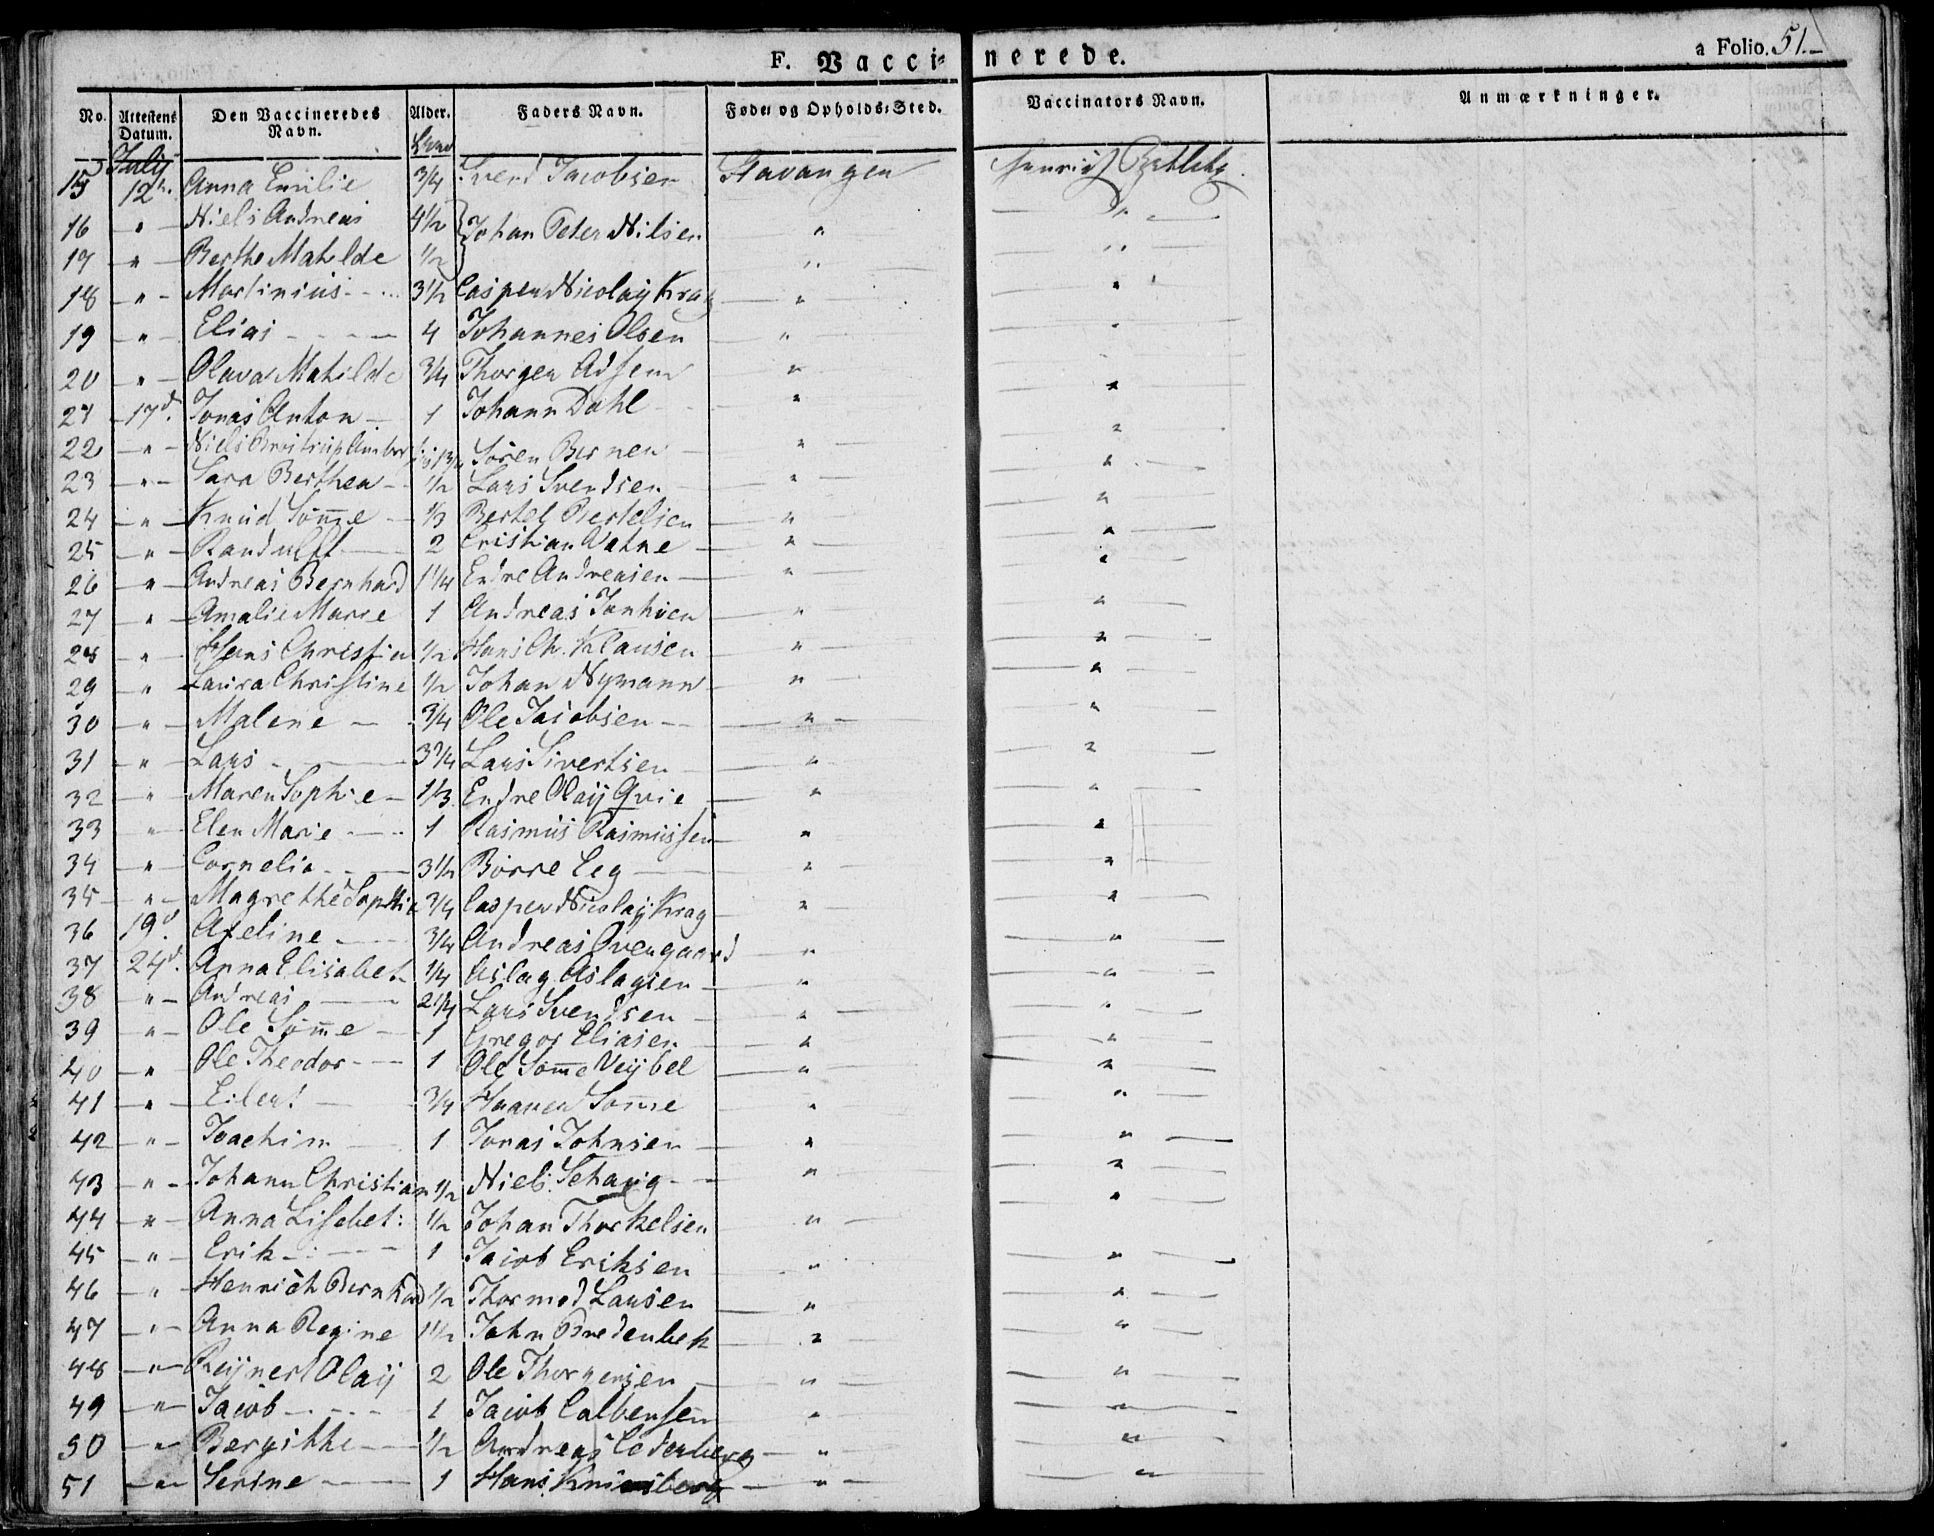 F. Vaccinerede.
a Folio. 51.-
No. Attestens Datum. Den Vaccineredes Navn. Alder. Faders Navn. Føde- og Opholds-Sted. Vaccinators Navn. Anmærkninger.
July
15 12te Anna Emilie 3/4 Svend Jacobsen Stavanger
16 " Niels Andreas 4 1/2 } Johan Peter Nilsen " "
17 " Berthe Mathilde 1/2 " "
18 " Martinius 3 1/2 Casper Nicolaij Krag " "
19 " Elias 4 Johannes Olsen " "
20 " Olava Mathilde 3/4 Thorger " "
21 17d. Jonas Anton 1 Johann Dahl " "
22 " Niels Søren Berner " "
23 " Sara Berthea 1/2 Lars Svendsen " "
24 " Knud Sømme 1/3 Bertel Bertelsen " "
25 " Randulff 2 Cristian Vatne " "
26 " Andreas Bernhard 1 1/4 Endre Andreasen " "
27 " Amalie Marie 1 Andreas " "
28 " Hans Christian 1/2 Hans Ch. Klausen " "
29 " Laura Christine 1/2 Johan Nymann " "
30 " Malene 3/4 Ole Jacobsen " "
31 " Lars 3 3/4 Lars Sivertsen " "
32 " Maren Sophie 1 1/3 Endre Olaij Qvie " "
33 " Elen Marie 1 Rasmus Rasmussen " "
34 " Cornelia 3 1/2 Børre Eeg " "
35 " Magrethe Sophie 3/4 Casper Nicolaij Krag " "
36 19d. Aseline 3/4 Andreas Qvengaard " "
37 24d. Anna Elisabet 1/4 Aslag Aslagsen " "
38 " Andreas 2 1/4 Lars Svendsen " "
39 " Ole Sømme 1 Gregor Eliasen " "
40 " Ole Theodor 1 Ole Sømme Veijbel " "
41 " Eilert 3/4 Haaver Sømme " "
42 " Joachim 1 Jonas Johnsen " "
43 " Johann Christian 1/2 Niels Schaug " "
44 " Anna Lisebet: 1/2 Johan Thorkelsen " "
45 " Erik 1 Jacob Eriksen " "
46 " Henrich Bernhard 1/2 Thormod Larsen " "
47 " Anna Regine 1 1/2 John Bredenbek " "
48 " Reijnert Olaij 2 Ole Thorgersen " "
49 " Jacob 1 Jacob Calbensen " "
50 " Bergithe 1/2 Andreas Cedenberg " "
51 " Serine 1 Hans " "